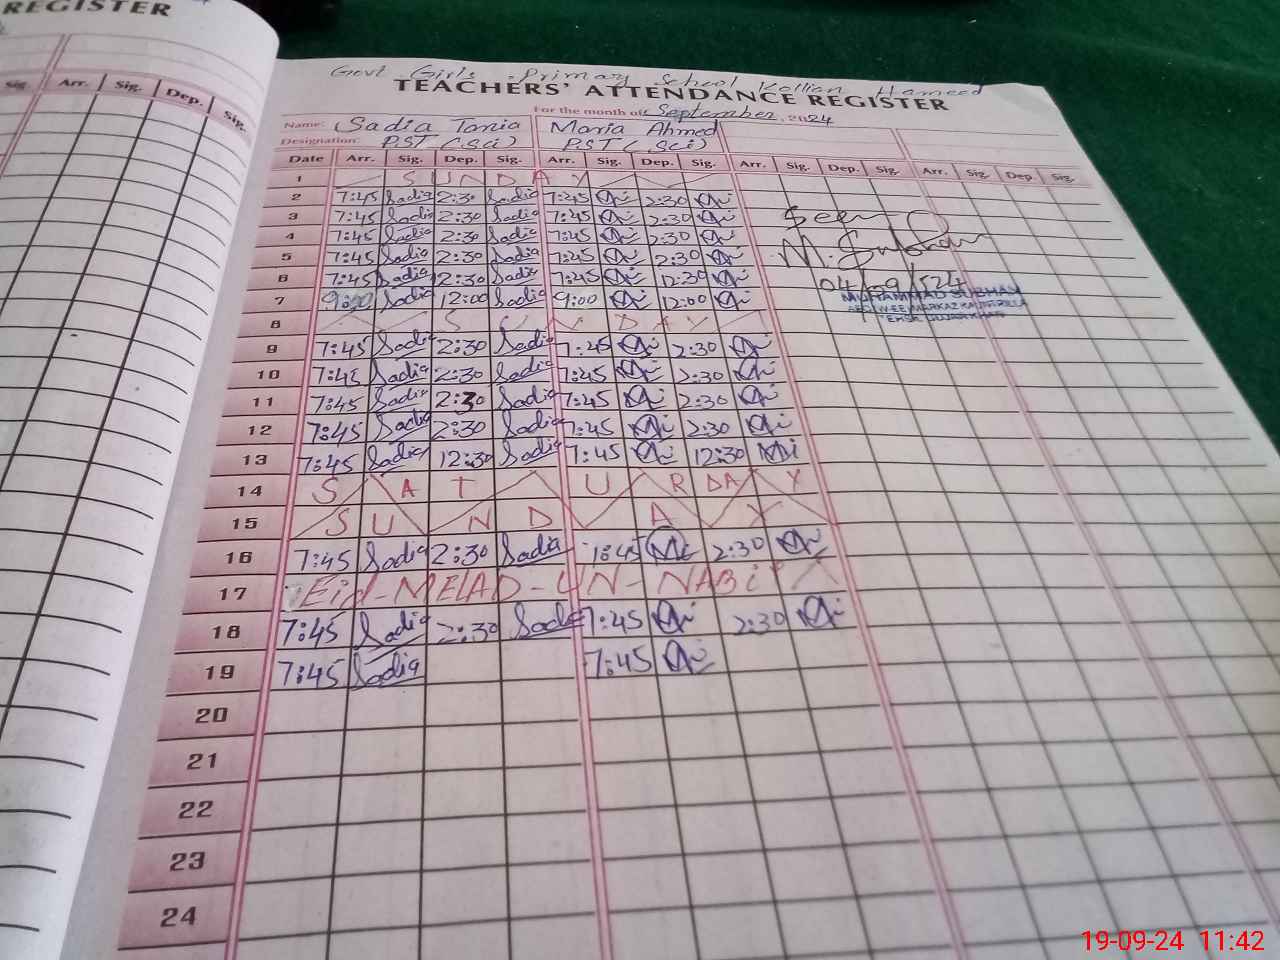 REGISTER
Sig. Arr. Sig. Dep. Sig.
Govt Girls Primary School Kallian Hameed
TEACHERS' ATTENDANCE REGISTER
For the month of September, 2024
Name: Sadia Tania Maria Ahmed
Designation: PST (Sci) PST (Sci)
Date Arr. Sig. Dep. Sig. Arr. Sig. Dep. Sig. Arr. Sig. Dep. Sig. Arr. Sig. Dep. Sig.
1 SUNDAY
2 7:45 Sadia 2:30 Sadia 7:45 2:30
3 7:45 Sadia 2:30 Sadia 7:45 2:30
4 7:45 Sadia 2:30 Sadia 7:45 2:30
5 7:45 Sadia 2:30 Sadia 7:45 2:30
6 7:45 Sadia 12:30 Sadia 7:45 12:30
7 9:00 Sadia 12:00 Sadia 9:00 12:00
8 SUNDAY
9 7:45 Sadia 2:30 Sadia 7:45 2:30
10 7:45 Sadia 2:30 Sadia 7:45 2:30
11 7:45 Sadia 2:30 Sadia 7:45 2:30
12 7:45 Sadia 2:30 Sadia 7:45 2:30
13 7:45 Sadia 12:30 Sadia 7:45 12:30
14 SATURDAY
15 SUNDAY
16 7:45 Sadia 2:30 Sadia 7:45 2:30
17 Eid-MELAD-UN-NABi
18 7:45 Sadia 2:30 Sadia 7:45 2:30
19 7:45 Sadia 7:45
20
21
22
23
24
Seen
M. Subhan
04/09/24
MUHAMMAD SUBHAN
19-09-24 11:42